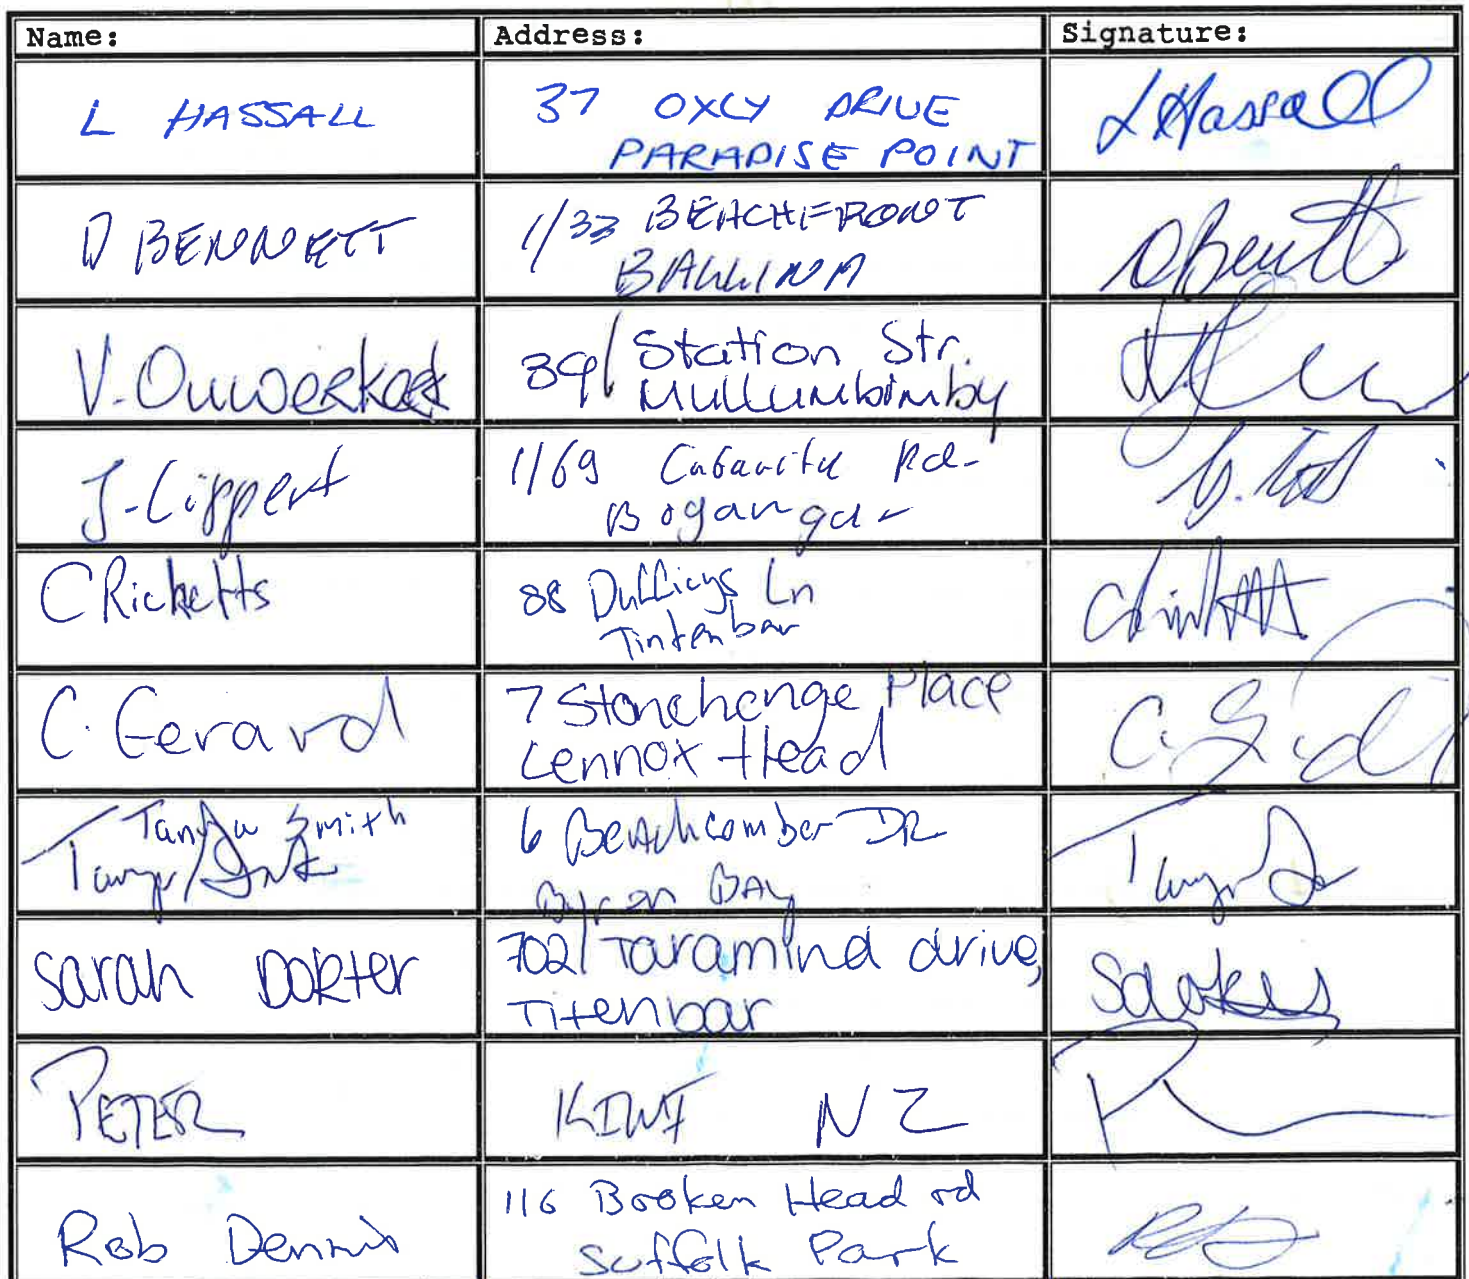 Name: Address: Signature:
L HASSALL 37 OXLY DRIVE L Hassall
PARADISE POINT
D BENNETT 1/33 BEACHFRONT DBentt
BALLINA
V. Ouwerkerk 39/ Station Str.
Mullumbimby
J. Lippert 1/69 Rd-
Bogangar
C Ricketts 88 Ln
Tintenbar
C. Gerard 7 Stonehenge Place C.
Lennox Head
Tanya Smith 6 Beachcomber DR
Tanya Byron BAY
Sarah Dokter 702/ Taramind drive,
Titenbar
PETER KIWI NZ
Rob Dennis 116 Broken Head rd
Suffolk Park